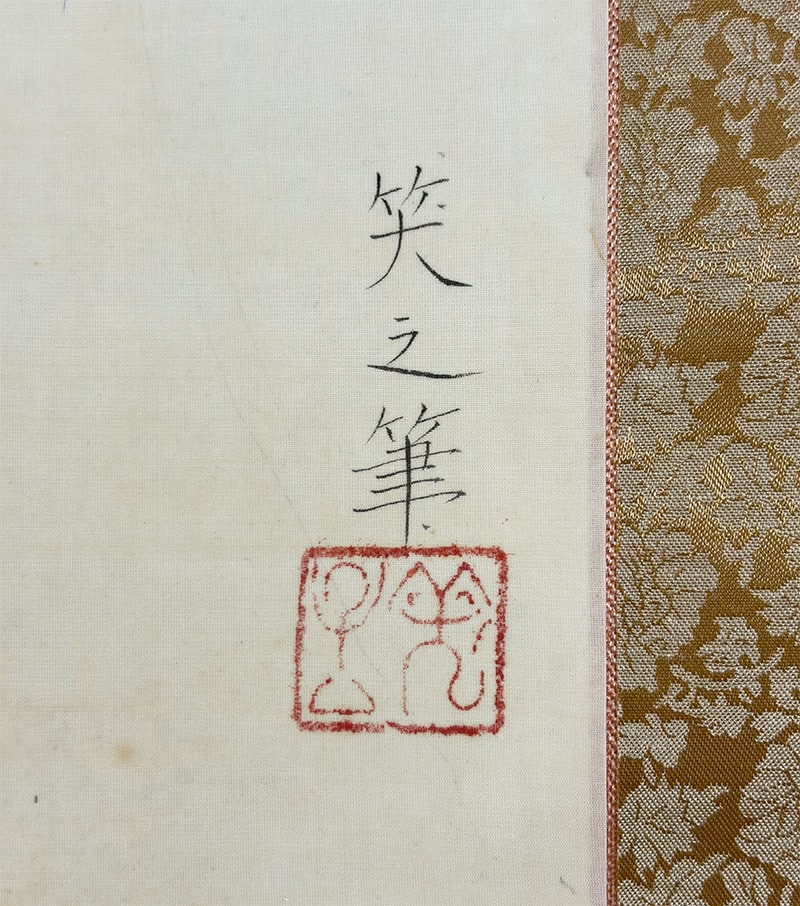 笑之筆